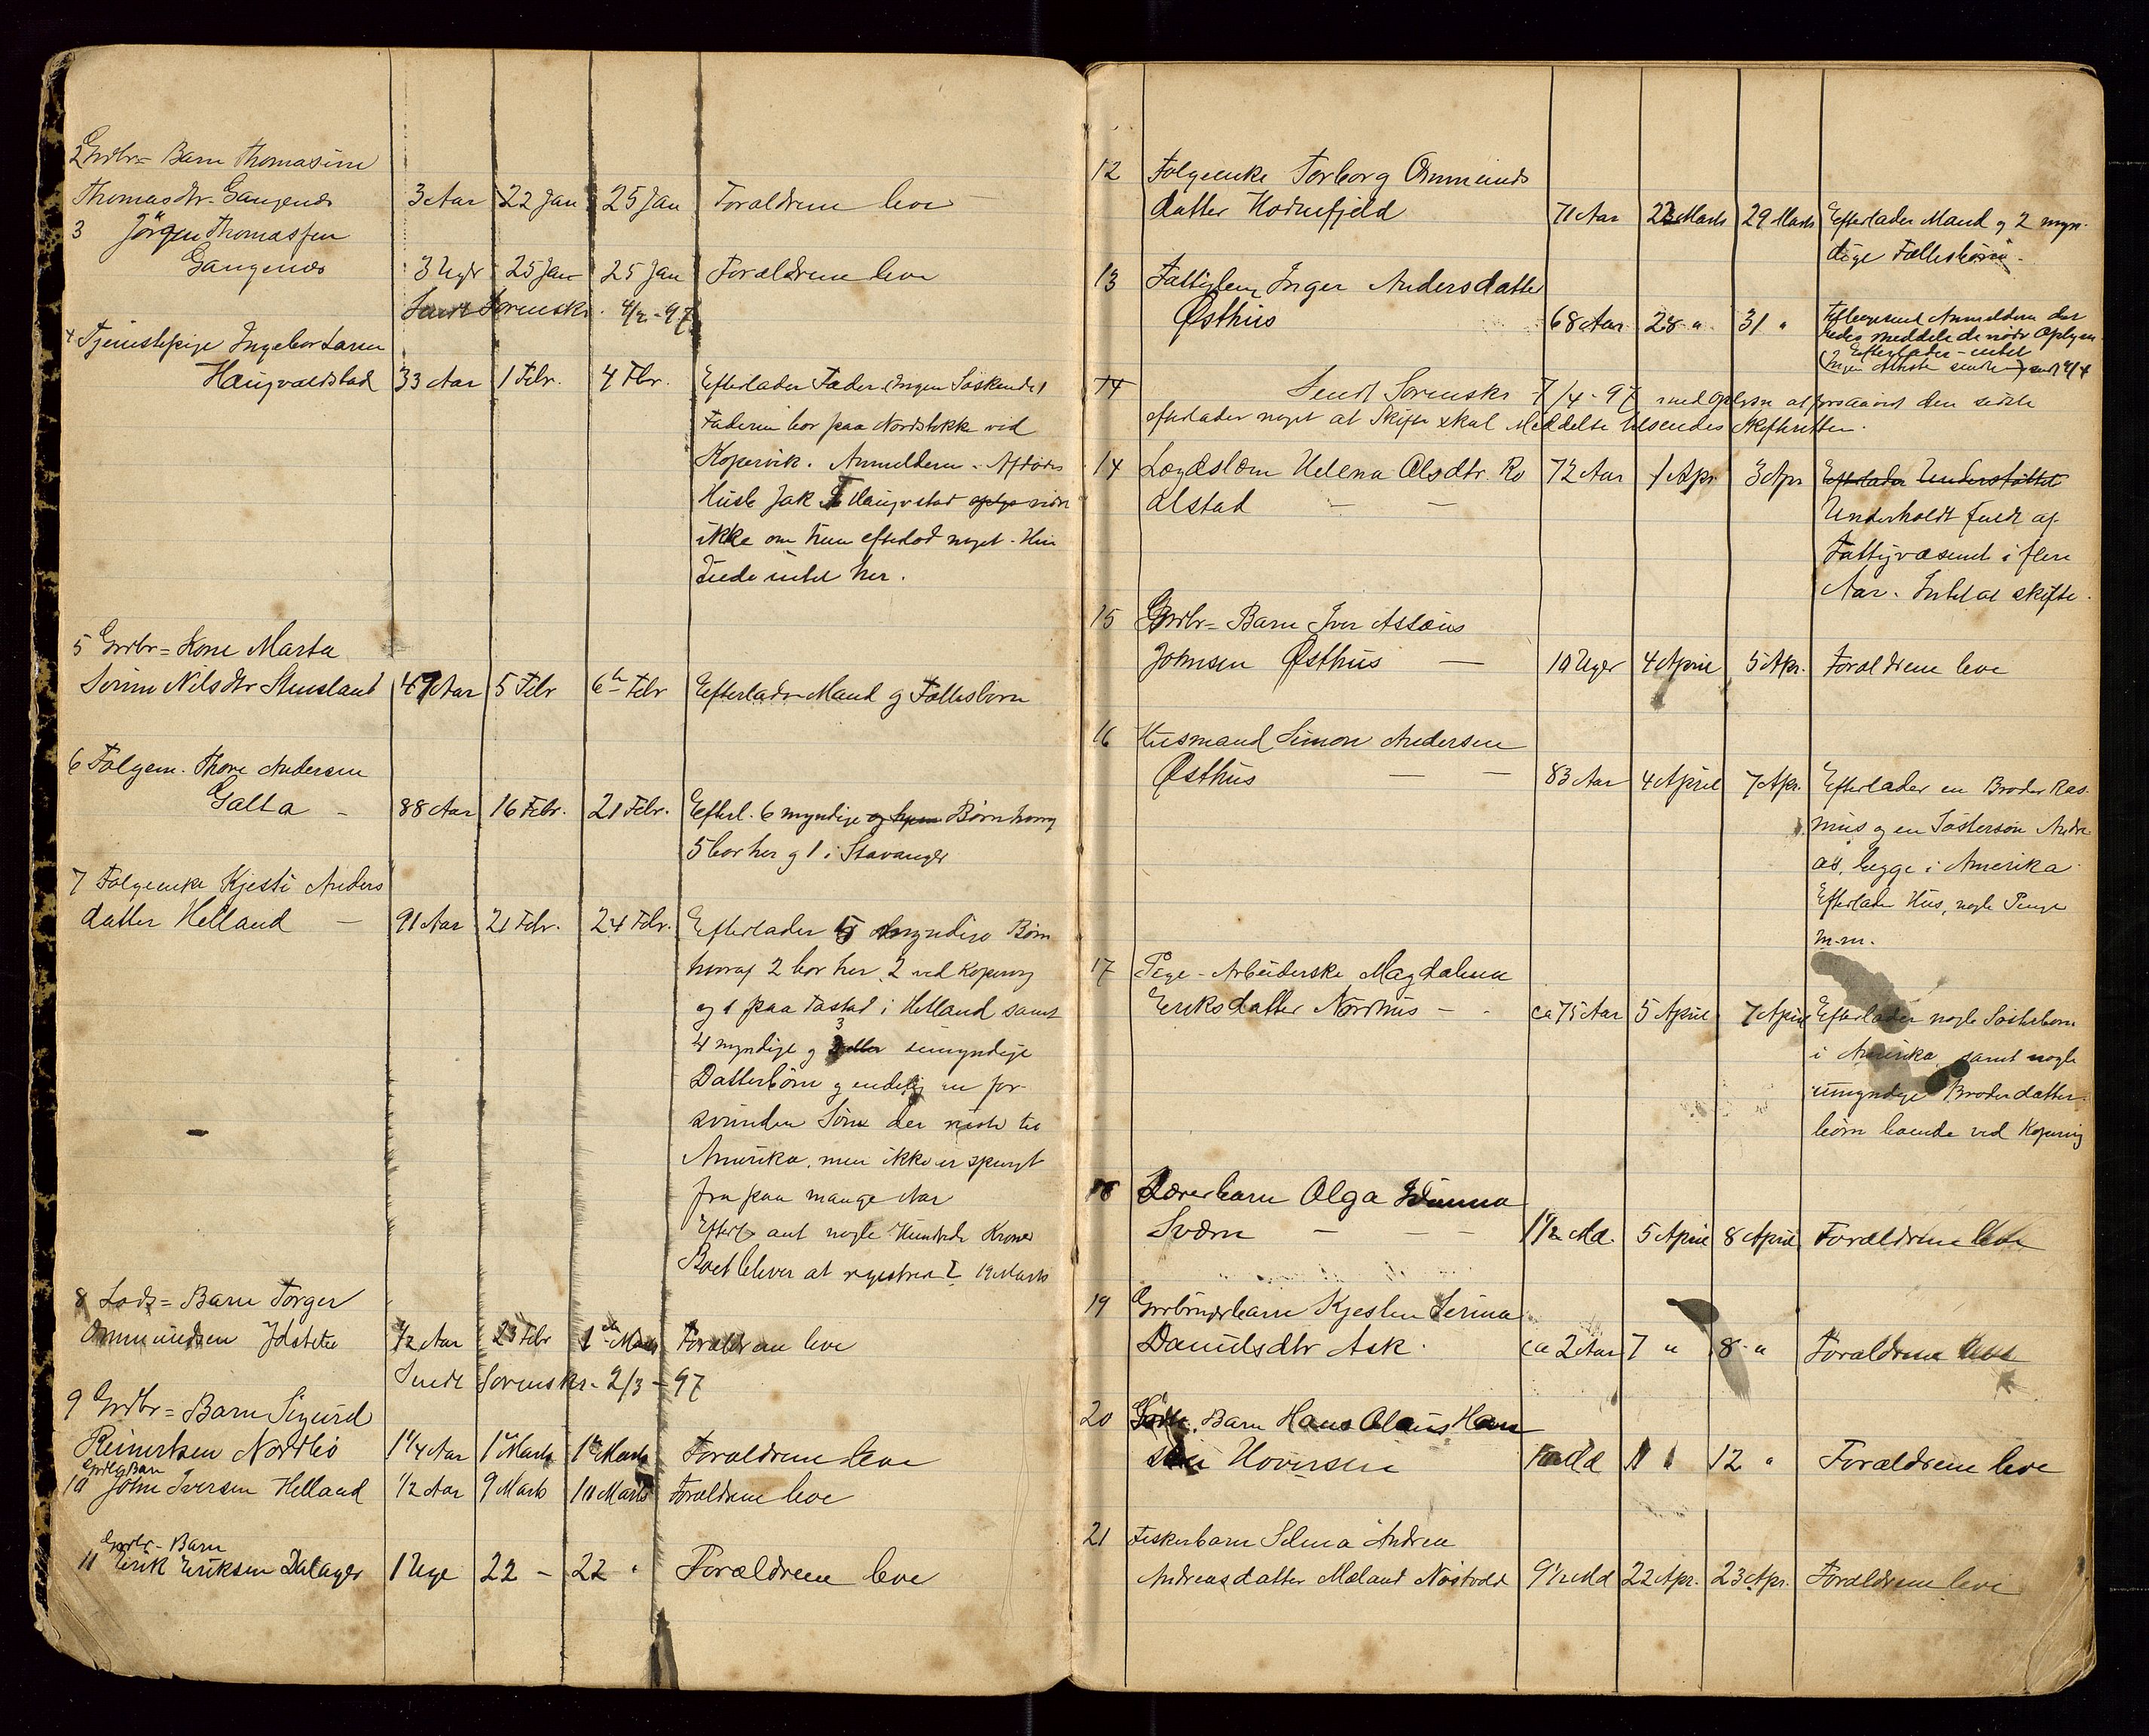 2 Grdbr= Barn Thomasine
Thomasdtr. Gangenæs 3 Aar 22 Jan 25 Jan Forældrene leve
3 Jörgen Thomassen
Gangenæs 3 Uger 25 Jan 25 Jan Forældrene leve
Sendt Sorenskr. 4/2 - 97
4 Tjenestepige Ingebor Larsen
Haugvaldstad 33 Aar 1 Febr. 4 Fbr. Efterlader Fader (Ingen Söskende)
Faderen bor paa Nordstokke ved
Kopervik. Anmelderen - Afdödes
Husb. Jak T Haugvstad vidste
ikke om hun efterlod noget. Hun
eiede intet her.
5 Grdbr= Kone Marta
Serine Nilsdtr 47 Aar 5 Febr 6te Febr Efterlader Mand og Fællesbörn
6 Folgem. Thore Andersen
Galta - 88 Aar 16 Febr. 21 Febr. Efterl. 6 myndige Börn hvoraf
5 bor her og 1 i Stavanger
7 Folgeenke Kjesti Anders
datter Helland - 91 Aar 21 Febr. 24 Febr. Efterlader 5 myndige Börn
hvoraf 2 bor her, 2 ved Kopervig
og 1 paa Tastad i Hetland samt
4 myndige og 3 umyndige
Datterbörn og endelig en for-
svunden Sön der reiste til
Amerika, men ikke er spurgt
fra paa mange Aar
Efterl. ant nogle Hundrede Kroner
Boet blever at registrere 19 Marts
8 Lods= Barn Torger
Ommundsen 1/2 Aar 23 Febr 1ste Marts Forældrene leve
Sendt Sorenskr. 2/3 - 97
9 Grdbr= Barn Sigurd
Reinertsen Nordbö 1 1/4 Aar 1 Marts 1 Marts Forældrene leve
Grdbr Barn
10 John Iversen Helland 1/2 Aar 9 Marts 10 Marts Forældrene leve
Grdbr- Barn
11 Erik Eriksen Dalager 1 Uge 22 - 22 " Forældrene leve
12 Folgeenke Torborg Ommunds
datter Hodnefjeld 71 Aar 23 Marts 29 Marts Efterlader Mand og 2 myn-
dige Fællesbörn -
13 Fattiglem Inger Andersdatter
Østhus 68 Aar 28 " 31 " Anmelderen
meddele de nödv Oplysn.
Efterlader - intet
14 Sendt Sorenskr 7/4 - 97 med Oplysn at forsaavidt den sidste
efterlader noget at Skifte skal Meddelse tilsendes Skifteretten.
14 Lægdslem Helena Olsdtr. Ro 72 Aar 1 Apr. 3 Apr Efterlader Understöttet
alstad - - Underholdt fuldt af
Fattigvæsenet i flere
Aar. Intet at skifte.
15 Grdbr= Barn Iver Assæus
Johnsen Østhus - 10 Uger 4 April 5 Apr. Forældrene leve
16 Husmand Simon Andersen
Østhus - - 83 Aar 4 April 7 Apr. Efterlader en Broder Ras-
mus og en Sösterson Andre
as, begge i Amerika
Efterlader Hus, nogle Penge
m.m.
17 Pige - Arbeiderske Magdalena
Eriksdatter Nordhus - - ca 75 Aar 5 April 7 April Efterlader nogle Sösterbörn
i Amerika, samt nogle
umyndige Broderdatter-
börn boende ved Kopervig
18 Lærerbarn Olga
Sværn - - - 1 1/2 Md. 5 April 8 April Forældrene leve
19 Grdbrugerbarn Kjesten Serina
Danielsdtr Ask. ca 2 Aar 7 " 8 " Forældrene leve
20 Barn Hans Olaus Han
sen Hovirsen 11 12 " Forældrene leve
21 Fiskerbarn Selma Andrea
Andreasdatter Mæland 9 1/2 Md 22 Apr. 23 Apr. Forældrene leve